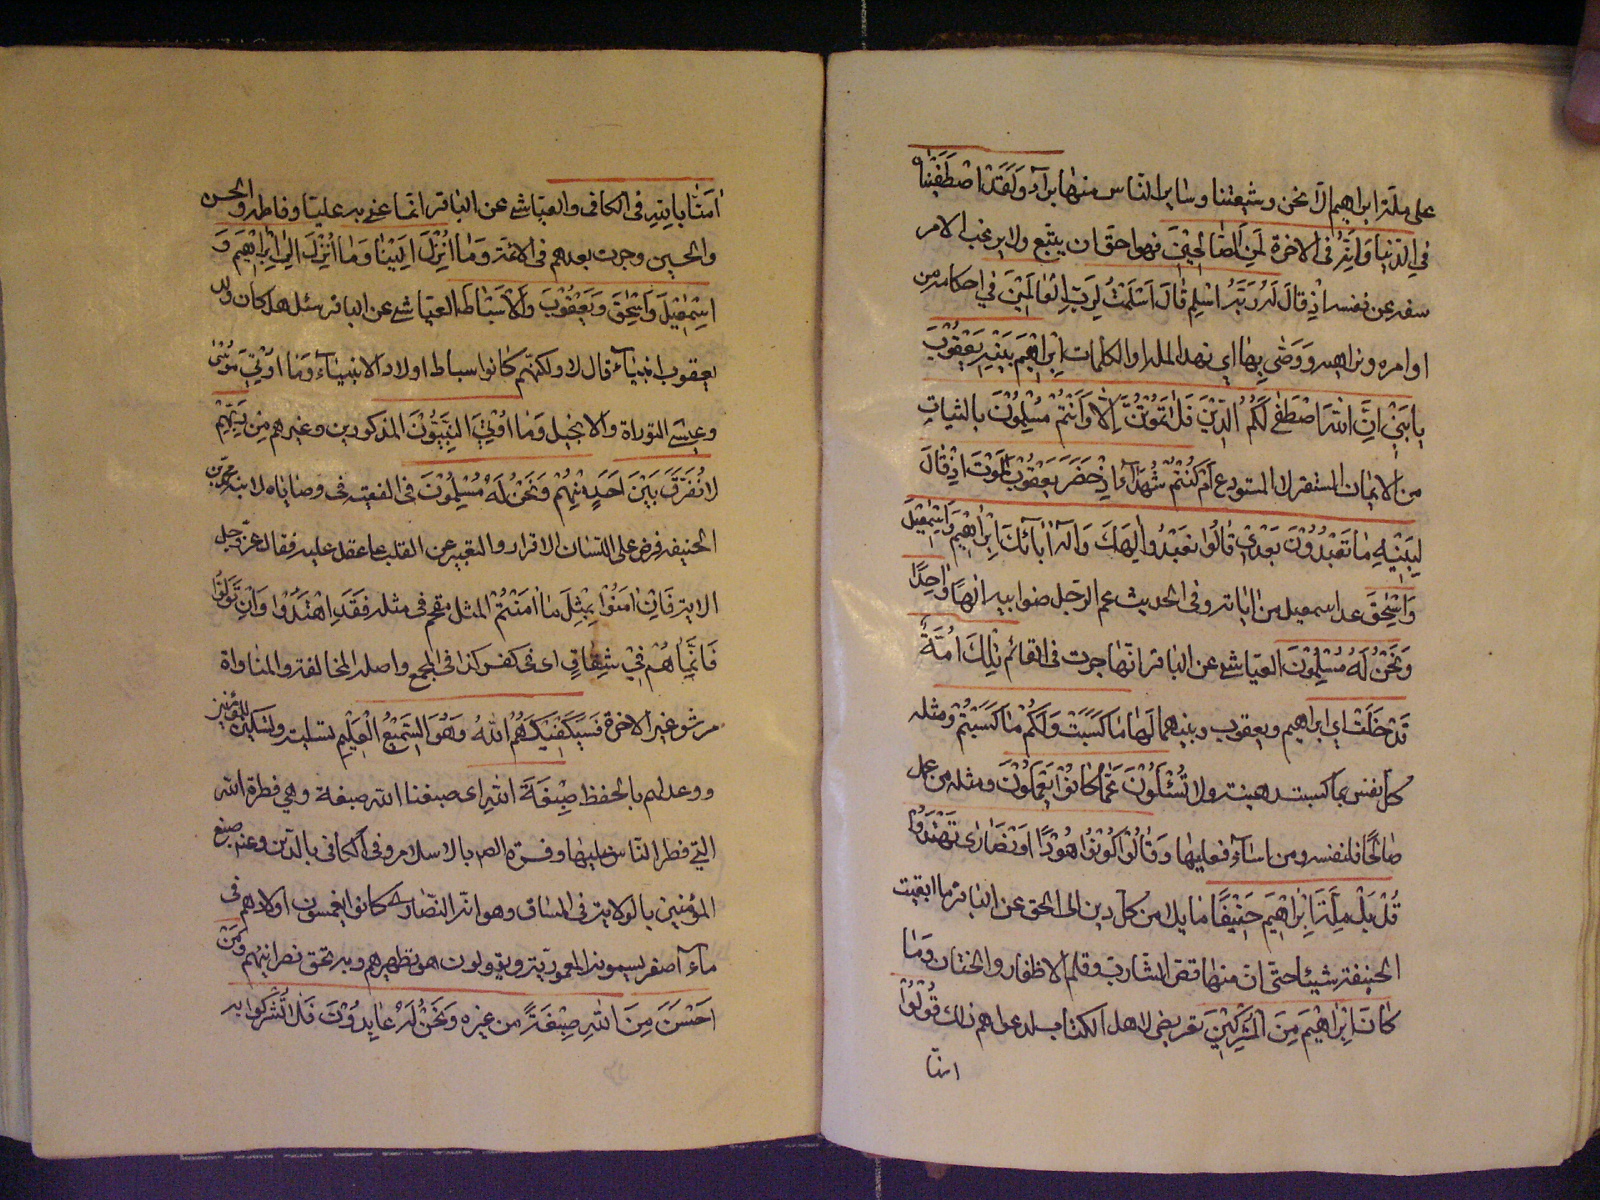 على ملة ابراهيم الا نحن وشيعتنا وساير الناس منها براء وَلَقَدْ اصْطَفَيْنَاهُ
فِي الدُّنْيَا وَاِنَّهُ فى الاخرة لَمِنَ الصَّالِحِيْنَ فهوا حق ان يتبع ولا يرغب الا من
سفه عن نفسه اِذْ قَالَ لَهُ رَبُّهُ اَسْلِمْ قَالَ اَسْلَمْتُ لِرَبِّ الْعَالَمِيْنَ في احكامه من
اوامره ونواهيه وَوَصّٰى بِهَا اي بهذا الملة او الكلمات اِبْرَاهِيْمُ بَنِيْهِ وَيَعْقُوْبُ
يا بَنِيَّ اِنَّ اللهَ اصْطَفٰى لَكُمُ الدِّيْنَ فَلَا تَمُوْتُنَّ اِلَّا وَاَنْتُمْ مُسْلِمُوْنَ بالثبات
من الايمان المستقر لا المستودع اَمْ كُنْتُمْ شُهَدَآءَ اِذْ حَضَرَ يَعْقُوْبَ الْمَوْتُ اِذْ قَالَ
لِبَنِيْهِ مَا تَعْبُدُوْنَ بَعْدِيْ قَالُوْا نَعْبُدُ اِلٰهَكَ وَاِلٰهَ اٰبَائِكَ اِبْرَاهِيْمَ وَاِسْمٰعِيْلَ
وَاِسْحٰقَ عد اسمعيل من ابائه وفى الحديث عم الرجل صنو ابيه اِلٰهًا وَاحِدًا
وَنَحْنُ لَهُ مُسْلِمُوْنَ العياشى عن الباقر انها جرت فى القائم تِلْكَ اُمَّةٌ
قَدْ خَلَتْ اي ابراهيم ويعقوب وبنيهما لَهَا مَا كَسَبَتْ وَلَكُمْ مَا كَسَبْتُمْ ومثله
كل نفس بما كسبت رهينة وَلَا تُسْئَلُوْنَ عَمَّا كَانُوْا يَعْمَلُوْنَ ومثله من عمل
صَالحًا فلنفسه ومن اساء فعليها وَقَالُوْا كُوْنُوْا هُوْدًا اَوْ نَصَارٰى تَهْتَدُوْا
قُلْ بَلْ مِلَّةَ اِبْرَاهِيْمَ حَنِيْفًا مايلا من كل دين الى الحق عن الباقر ما ابقيت
الحنيفة شيئا حتى ان منها قص الشارب وقلم الاظفار والختان وَمَا
كَانَ اِبْرَاهِيْمُ مِنَ الْمُشْرِكِيْنَ تعريض لاهل الكتاب لدعواهم ذلك قُوْلُوْا
امنّا
اٰمَنَّا بِاللهِ فى الكافى والعياشى عن الباقر انما عنى به عليا وفاطمة والحسن
والحسين وجرت بعدهم فى الائمة وَمَا اُنْزِلَ اِلَيْنَا وَمَا اُنْزِلَ اِلٰى اِبْرَاهِيْمَ وَ
اِسْمٰعِيْلَ وَاِسْحٰقَ وَيَعْقُوْبَ وَالْاَسْبَاطِ العياشى عن الباقر سئل هل كان ولد
يعقوب انبياء قال لا ولكنهم كانوا اسباط اولاد الانبياء وَمَا اُوْتِيَ مُوْسٰى
وعِيسٰى التوراة والانجيل وَمَا اُوْتِيَ النَّبِيُّوْنَ المذكورين وغيرهم مِنْ رَبِّهِمْ
لَا نُفَرِّقُ بَيْنَ اَحَدٍ مِنْهُمْ وَنَحْنُ لَهُ مُسْلِمُوْنَ فى الفقيه فى وصاياه لابنه محمد بن
الحنيفه فرض على اللسان الاقرار والتعبير عن القلب بما عقد عليه فقال عز وجل
الاية فَاِنْ اٰمَنُوْا بِمِثْلِ مَا اٰمَنْتُمْ المثل مقحم فى مثله فَقَدِ اهْتَدَوْا وَاِنْ تَوَلَّوْا
فَاِنَّمَا هُمْ فِيْ شِقَاقٍ اى فى كفر كذا فى المجمع واصله المخالفة والمناواة
فَسَيَكْفِيْكَهُمُ اللهُ وَهُوَ السَّمِيْعُ الْعَلِيْمُ تسلية وتسكين للمؤمنين
ووعد لهم بالحفظ صِبْغَةَ اللهِ اى صبغنا الله صبغة وهي فطرة الله
التى فطر الناس عليها وفسره الص بالاسلام وفى الكافى بالدين وعنه صبغ
المؤمنين بالولاية فى الميثاق وهو ان النصارى كانوا يغمسون اولادهم فى
ماء اصفر يسمونه المعمودية ويقولون هو تطهيرهم وبه تحق نصرانيتهم وَمَنْ
اَحْسَنُ مِنَ اللهِ صِبْغَةً من غيره وَنَحْنُ لَهُ عَابِدُوْنَ فلا تشركوا به